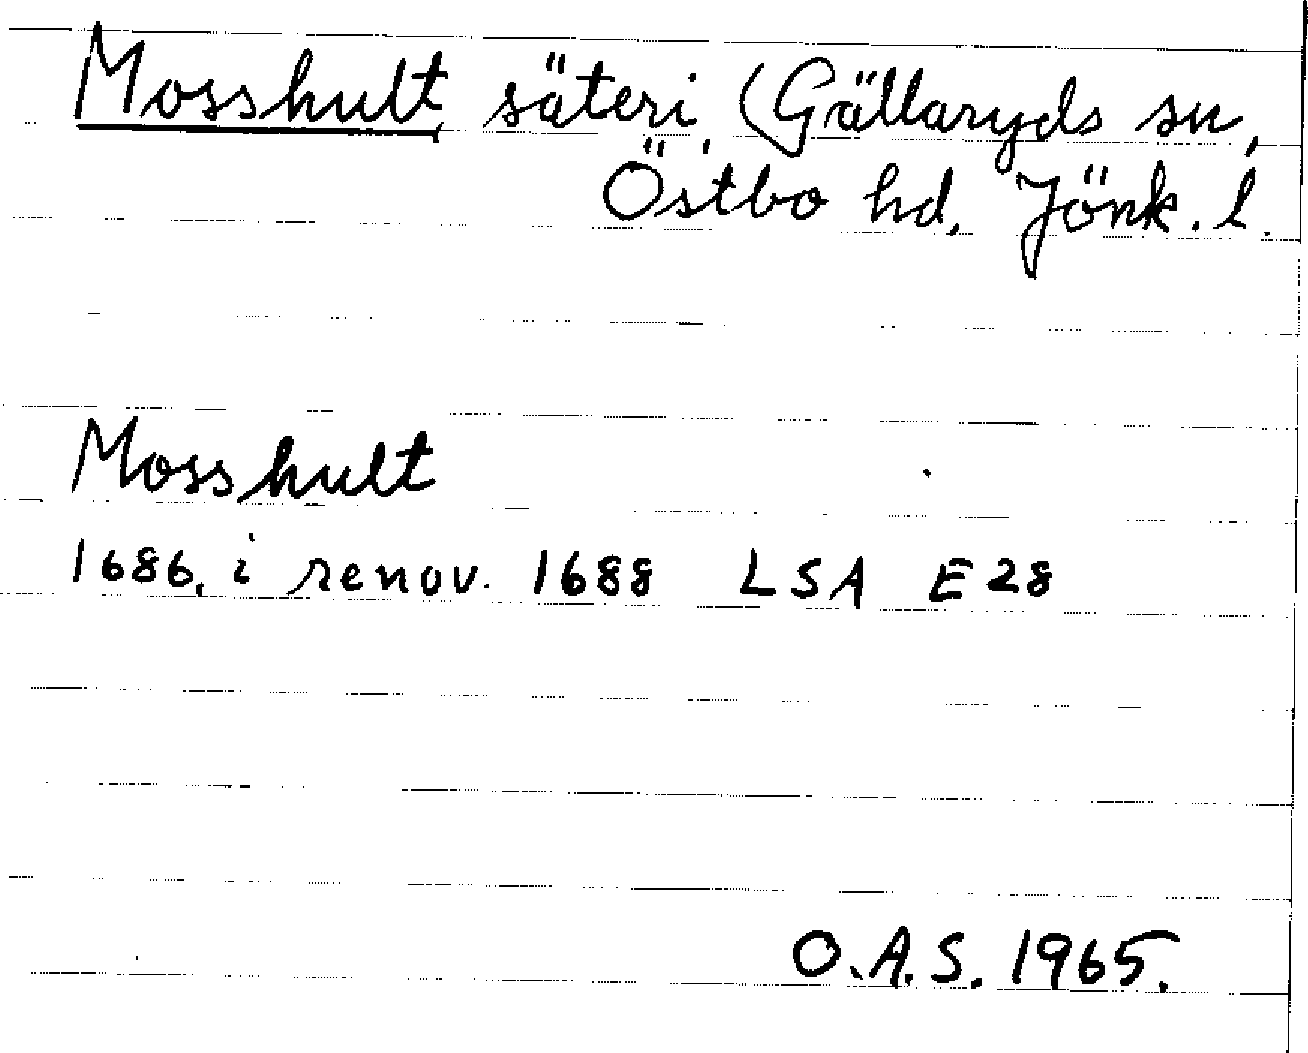 Mosshult säteri, (Gällaryds sn,
Östbo hd, Jönk. l.
Mosshult
1686, i renov. 1688 LSA E 28
O.A.S. 1965.